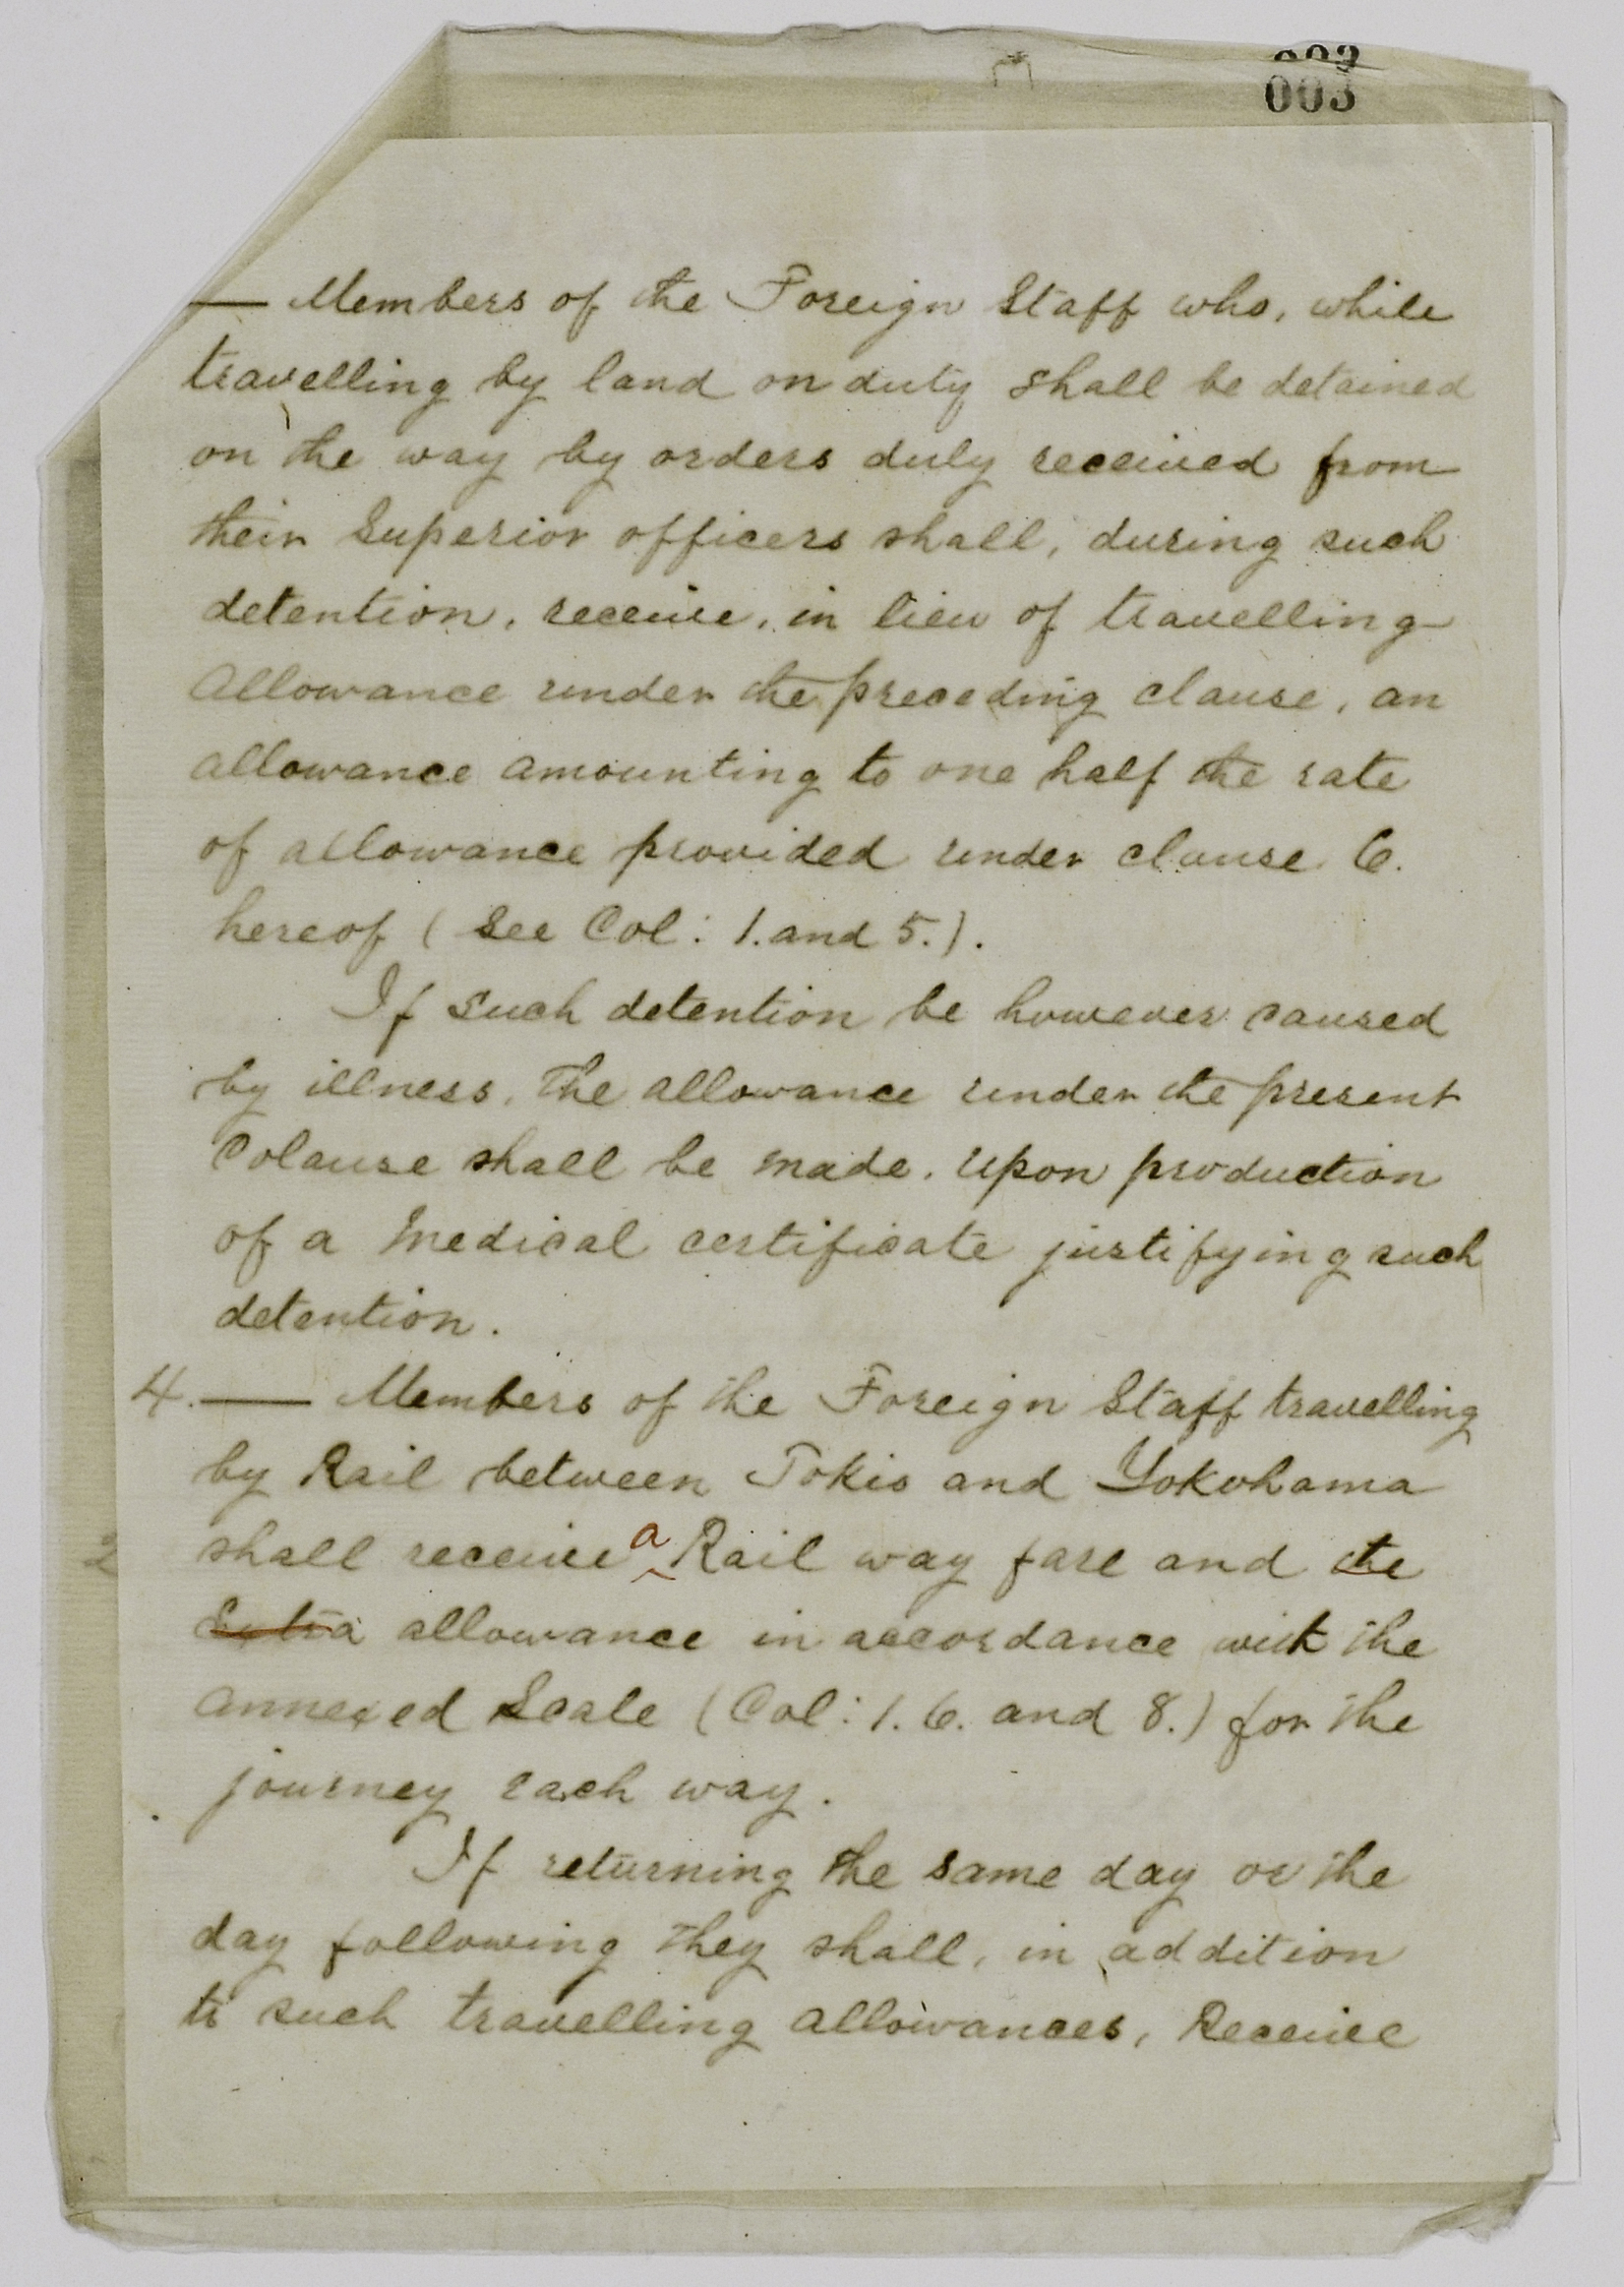 003
003
— Members of the Foreign Staff who, while
travelling by land on duty shall be detained
on the way by orders duly received from
their Superior officers shall, during such
detention, receive, in lieu of travelling
Allowance under the preceding clause, an
allowance amounting to one half the rate
of allowance provided under clause 6.
hereof ( See Col: 1. and 5.).
If such detention be however caused
by illness, the allowance under the present
Colause shall be made, upon production
of a medical certificate justifying such
detention.
4. — Members of the Foreign Staff travelling
by Rail between Tokio and Yokohama
shall receive a Rail way fare and the
Extra allowance in accordance with the
annexed Scale ( Col: 1. 6. and 8.) for the
journey each way.
If returning the same day or the
day following they shall, in addition
to such travelling allowances, Receive